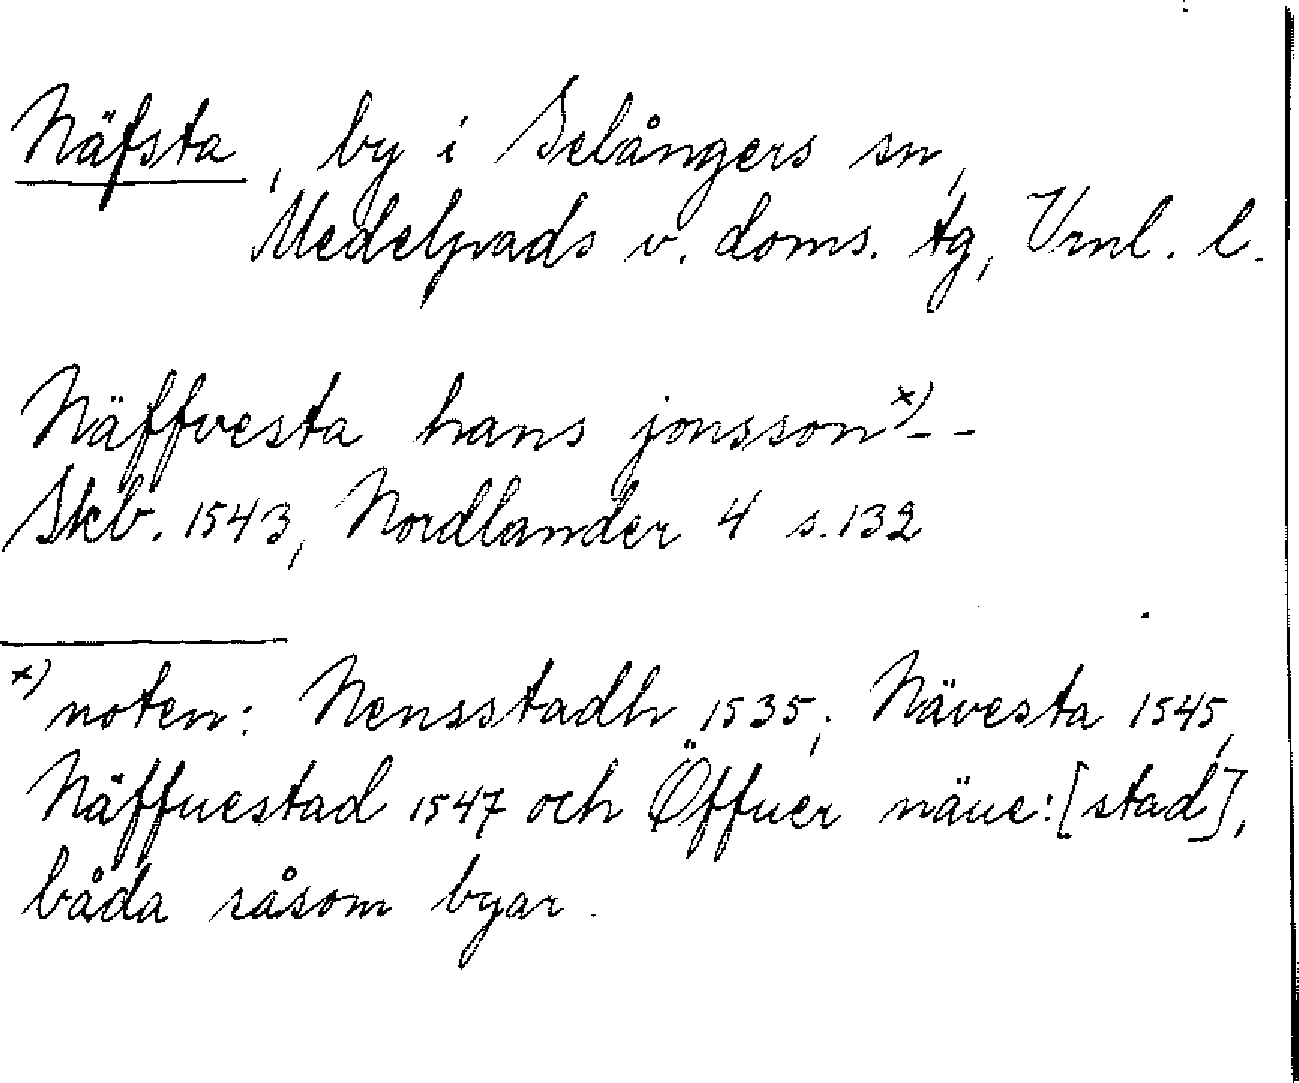 Näfsta, by i Selångers sn,
Medelpads v. doms. tg, Vrnl. l.
Näffvesta hans jonsson x) - -
Skb. 1543, Nordlander 4 s. 132
x) noten: Nensstadh 1535; Nävesta 1545,
Näffuestad 1547 och Öffuer näue:[stad],
båda såsom byar.